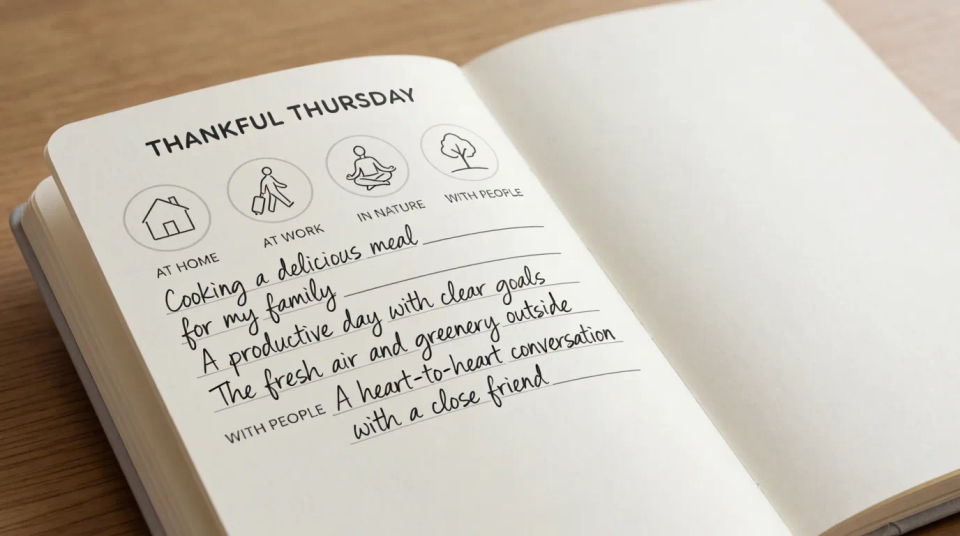 THANKFUL THURSDAY
AT HOME AT WORK IN NATURE WITH PEOPLE
Cooking a delicious meal
for my family
A productive day with clear goals
The fresh air and greenery outside
WITH PEOPLE A heart-to-heart conversation
with a close friend